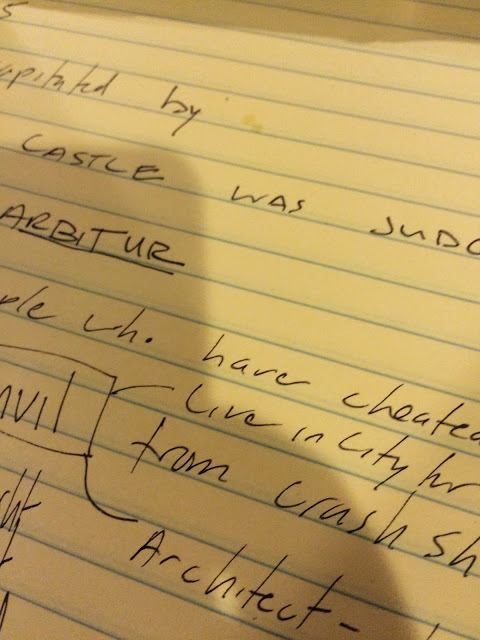 s
apitated by
CASTLE WAS JUDG
ARBITUR
ple who have cheated
NVIL
Live in City for
from crash sh
ght
Architect -